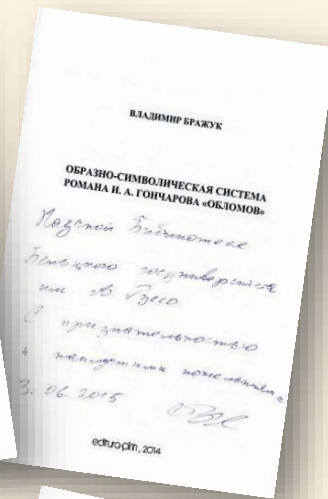 ВЛАДИМИР БРАЖУК
ОБРАЗНО-СИМВОЛИЧЕСКАЯ СИСТЕМА
РОМАНА И. А. ГОНЧАРОВА «ОБЛОМОВ»
Научной Библиотеке
Бельцкого госуниверситета
им. А. Руссо
С признательностью
и наилучшими пожеланиями
3. 06. 2015
, 2014